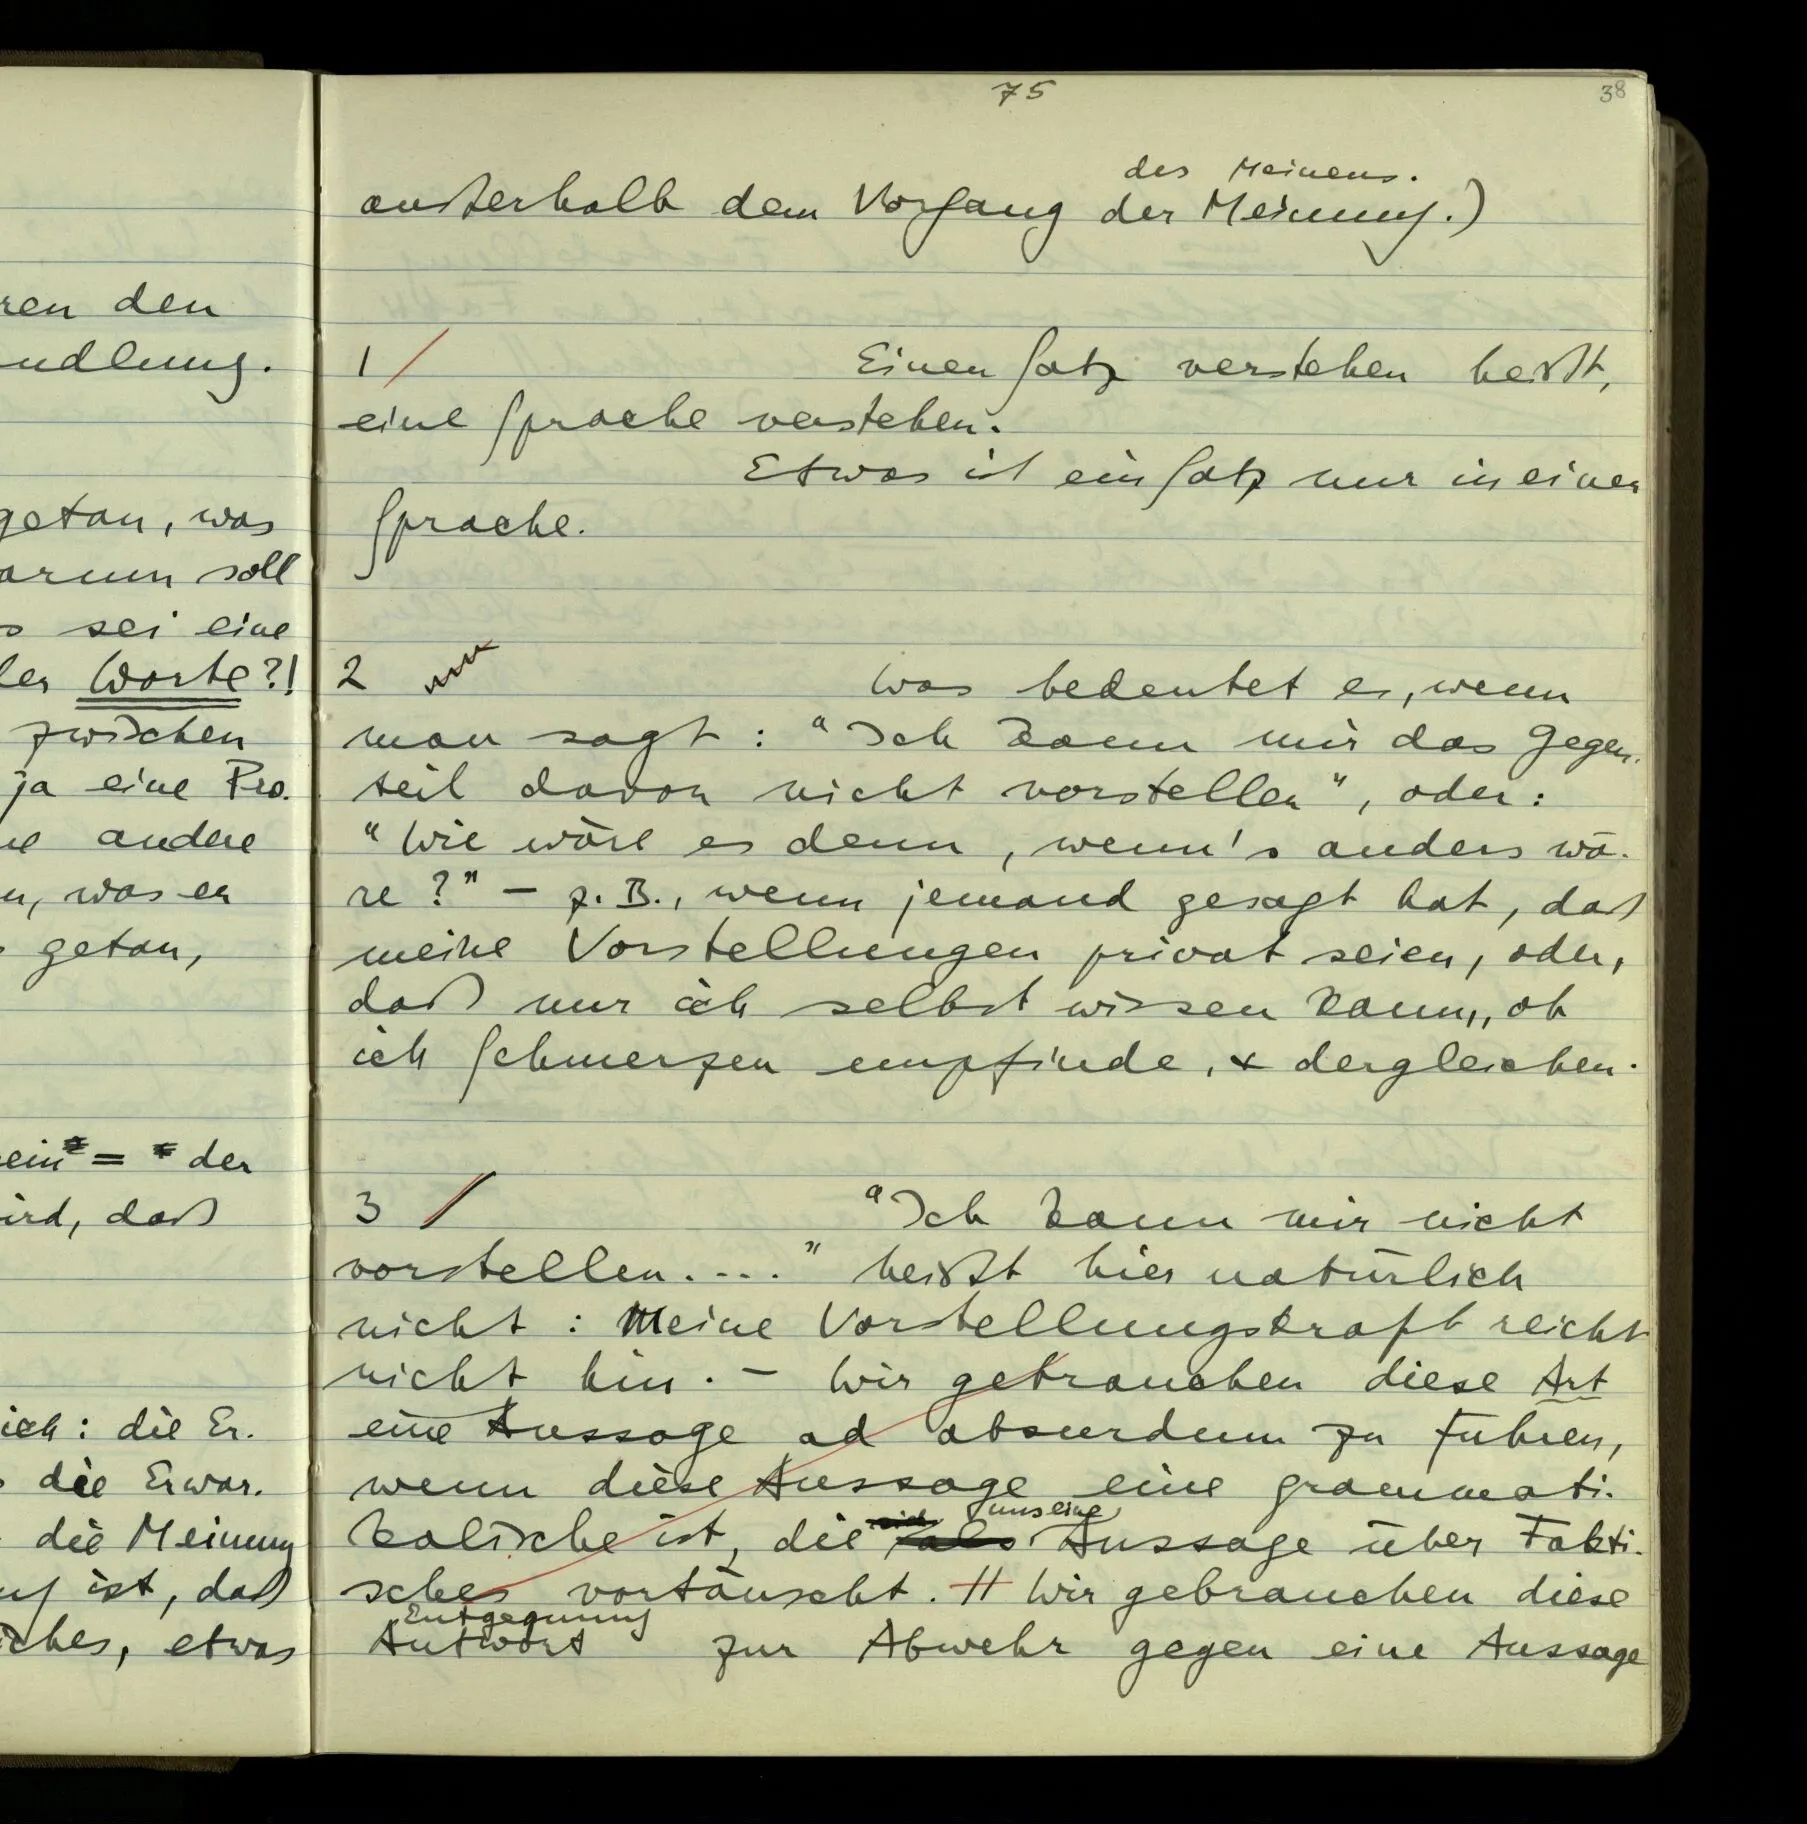 ren den
ndlung.
getan, was
arum soll
s sei eine
der Worte?!
zwischen
ja eine Pro-
ne andere
n, was er
s getan,
ein = der
ird, daß
ich: die Er-
s die Erwar-
die Meinung
ist, daß
iches, etwas
75
38
des Meinens.
außerhalb dem Vorgang der Meinung.)
1 / Einen Satz verstehen heißt,
eine Sprache verstehen.
Etwas ist ein Satz nur in einer
Sprache.
2 Was bedeutet es, wenn
man sagt: "Ich kann mir das Gegen-
teil davon nicht vorstellen", oder:
"Wie wäre es denn, wenn's anders wä-
re?" – z.B., wenn jemand gesagt hat, daß
meine Vorstellungen privat seien, oder,
daß nur ich selbst wissen kann, ob
ich Schmerzen empfinde, & dergleichen.
3 / "Ich kann mir nicht
vorstellen...." heißt hier natürlich
nicht: Meine Vorstellungskraft reicht
nicht hin. – Wir gebrauchen diese Art
eine Aussage ad absurdum zu führen,
wenn diese Aussage eine grammati-
sich uns eine
kalische ist, die als Aussage über Fakti-
sches vortäuscht. // Wir gebrauchen diese
Entgegnung
Antwort zur Abwehr gegen eine Aussage